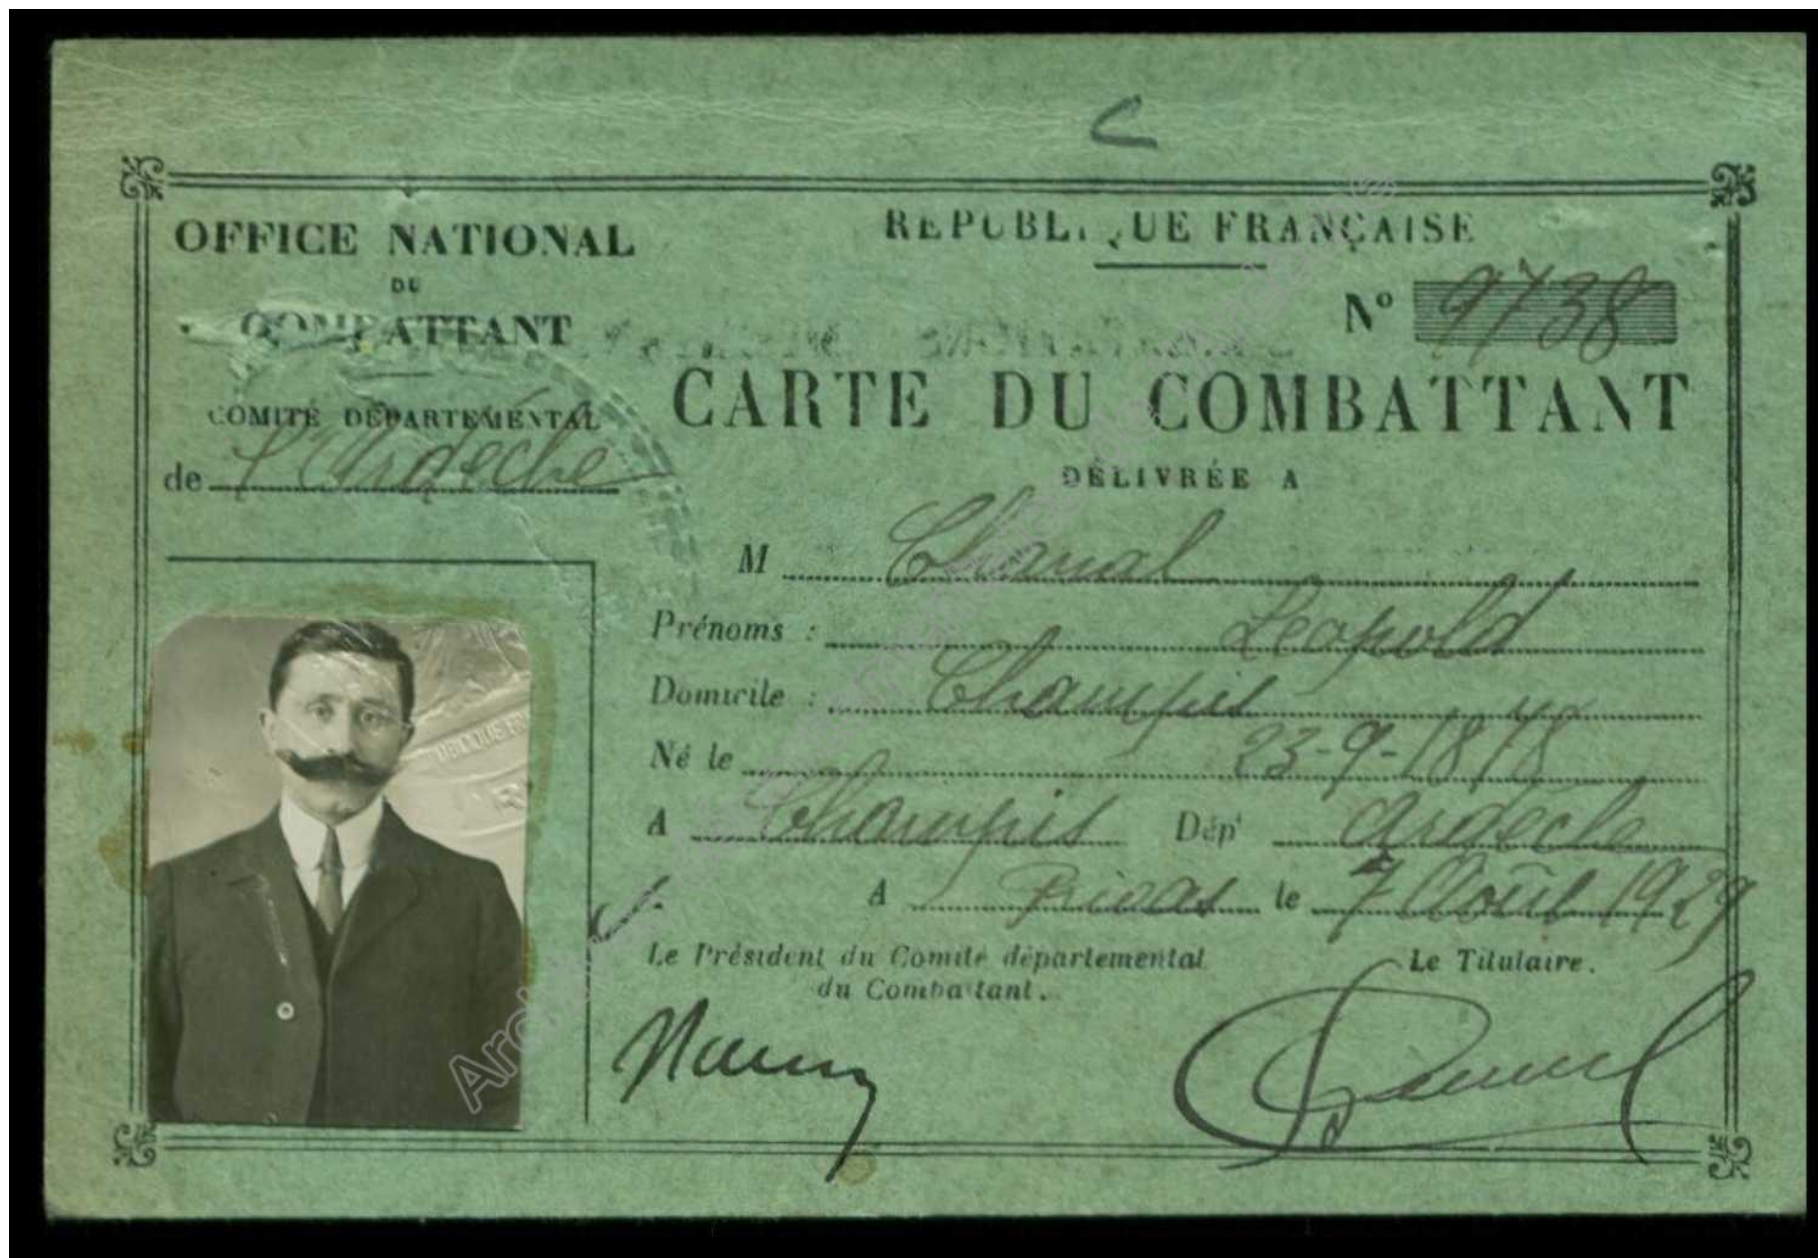 C
OFFICE NATIONAL
DU
COMBATTANT
COMITÉ DÉPARTEMENTAL
de l'Ardèche
RÉPUBLIQUE FRANÇAISE
Nº 9738
CARTE DU COMBATTANT
DÉLIVRÉE A
M Chanal
Prénoms : Léopold
Domicile : Champis
Né le 23-9-1878
A Champis Dépt Ardèche
A Privas le 7 Août 1929
Le Président du Comité départemental
du Combattant.
Le Titulaire.